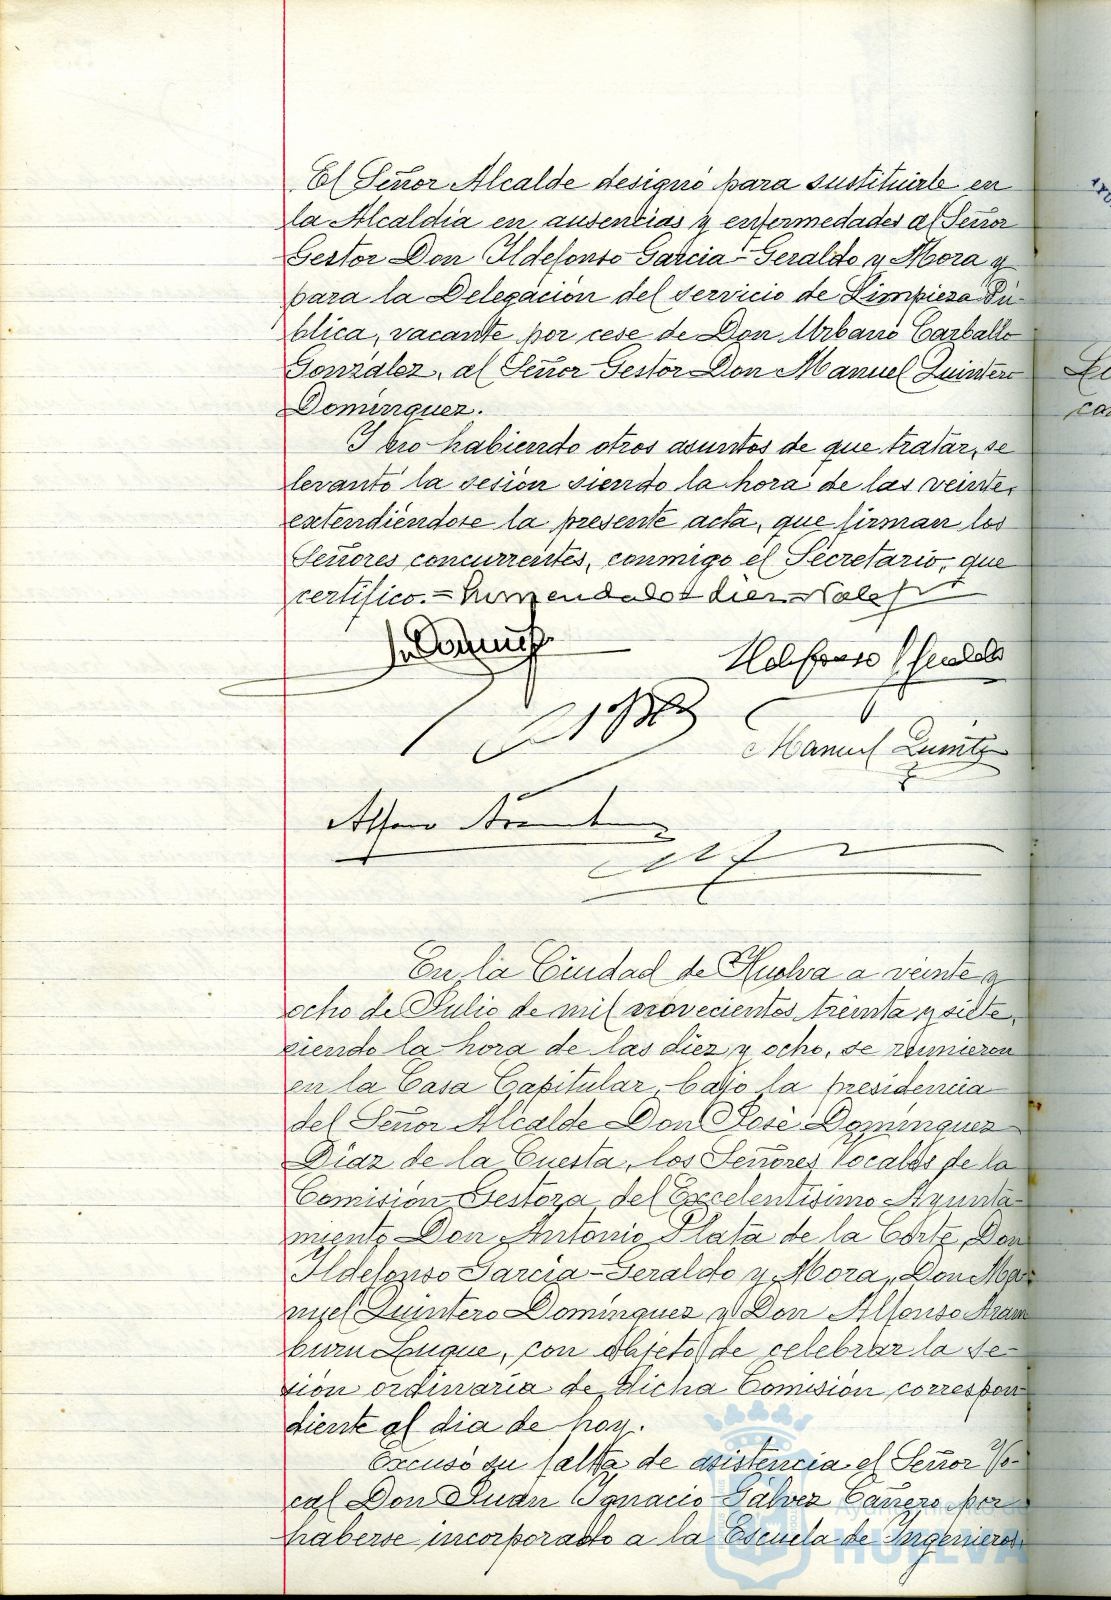 El Señor Alcalde designó para sustituirle en
la Alcaldía en ausencias y enfermedades al Señor
Gestor Don Ildefonso Garcia-Geraldo y Mora y
para la Delegación del servicio de Limpieza Pú-
blica, vacante por cese de Don Urbano Carballo
González, al Señor Gestor Don Manuel Quintero
Domínguez.
Y no habiendo otros asuntos de que tratar, se
levantó la sesión siendo la hora de las veinte,
extendiéndose la presente acta, que firman los
Señores concurrentes, conmigo el Secretario, que
certifico.= Enmendado= diez= Vale
Ildefonso G. Geraldo
Manuel Quintero
Alfonso Aramburu
En la Ciudad de Huelva a veinte y
ocho de Julio de mil novecientos treinta y siete,
siendo la hora de las diez y ocho, se reunieron
en la Casa Capitular, bajo la presidencia
del Señor Alcalde Don José Domínguez
Díaz de la Cuesta, los Señores Vocales de la
Comisión Gestora del Excelentísimo Ayunta-
miento Don Antonio Plata de la Corte, Don
Ildefonso García-Geraldo y Mora, Don Ma-
nuel Quintero Domínguez y Don Alfonso Aram
buru Luque, con objeto de celebrar la se-
sión ordinaria de dicha Comisión correspon-
diente al dia de hoy.
Excusó su falta de asistencia el Señor Vo-
cal Don Juan Ignacio Gálvez Cañero por
haberse incorporado a la Escuela de Ingenieros,
Ayuntamiento de
HUELVA